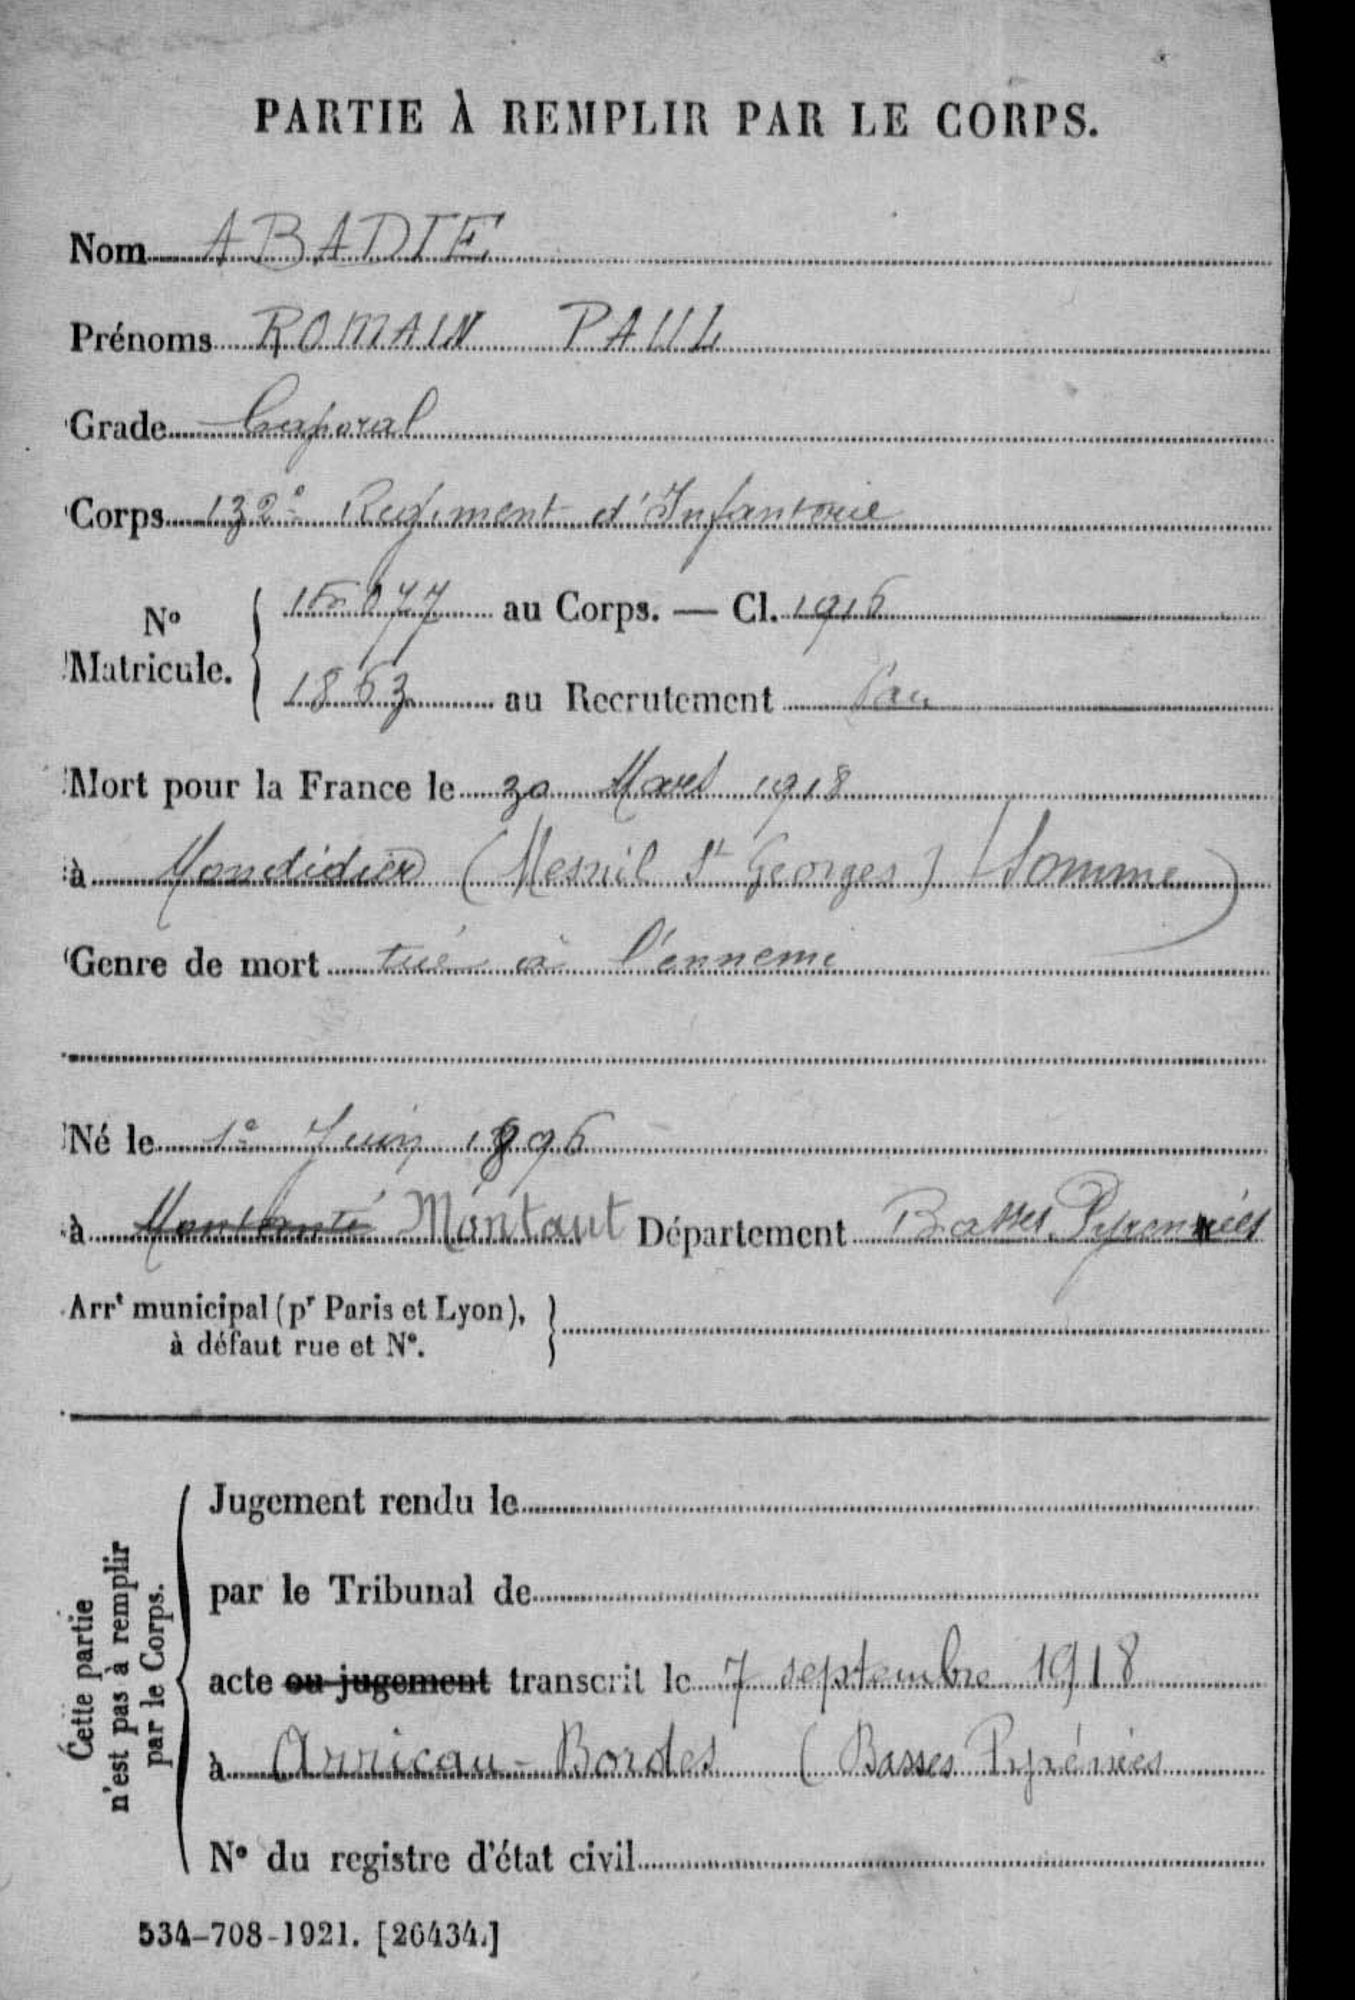 PARTIE À REMPLIR PAR LE CORPS.
Nom ABADIE
Prénoms ROMAIN PAUL
Grade Caporal
Corps 132e Regiment d'Infanterie
No Matricule. 15077 au Corps. — Cl. 1916
1863 au Recrutement Pau
Mort pour la France le 30 Mars 1918
à Mondidier (Mesnil St Georges) (Somme)
Genre de mort tué à l'ennemi
Né le 1e Juin 1896
à Montaut Département Basses Pyrennées
Arrt municipal (pr Paris et Lyon),
à défaut rue et No.
Cette partie
n'est pas à remplir
par le Corps.
Jugement rendu le
par le Tribunal de
acte ou jugement transcrit le 7 septembre 1918
à Arricau-Bordes (Basses Pyrénées
No du registre d'état civil
534-708-1921. [26434.]